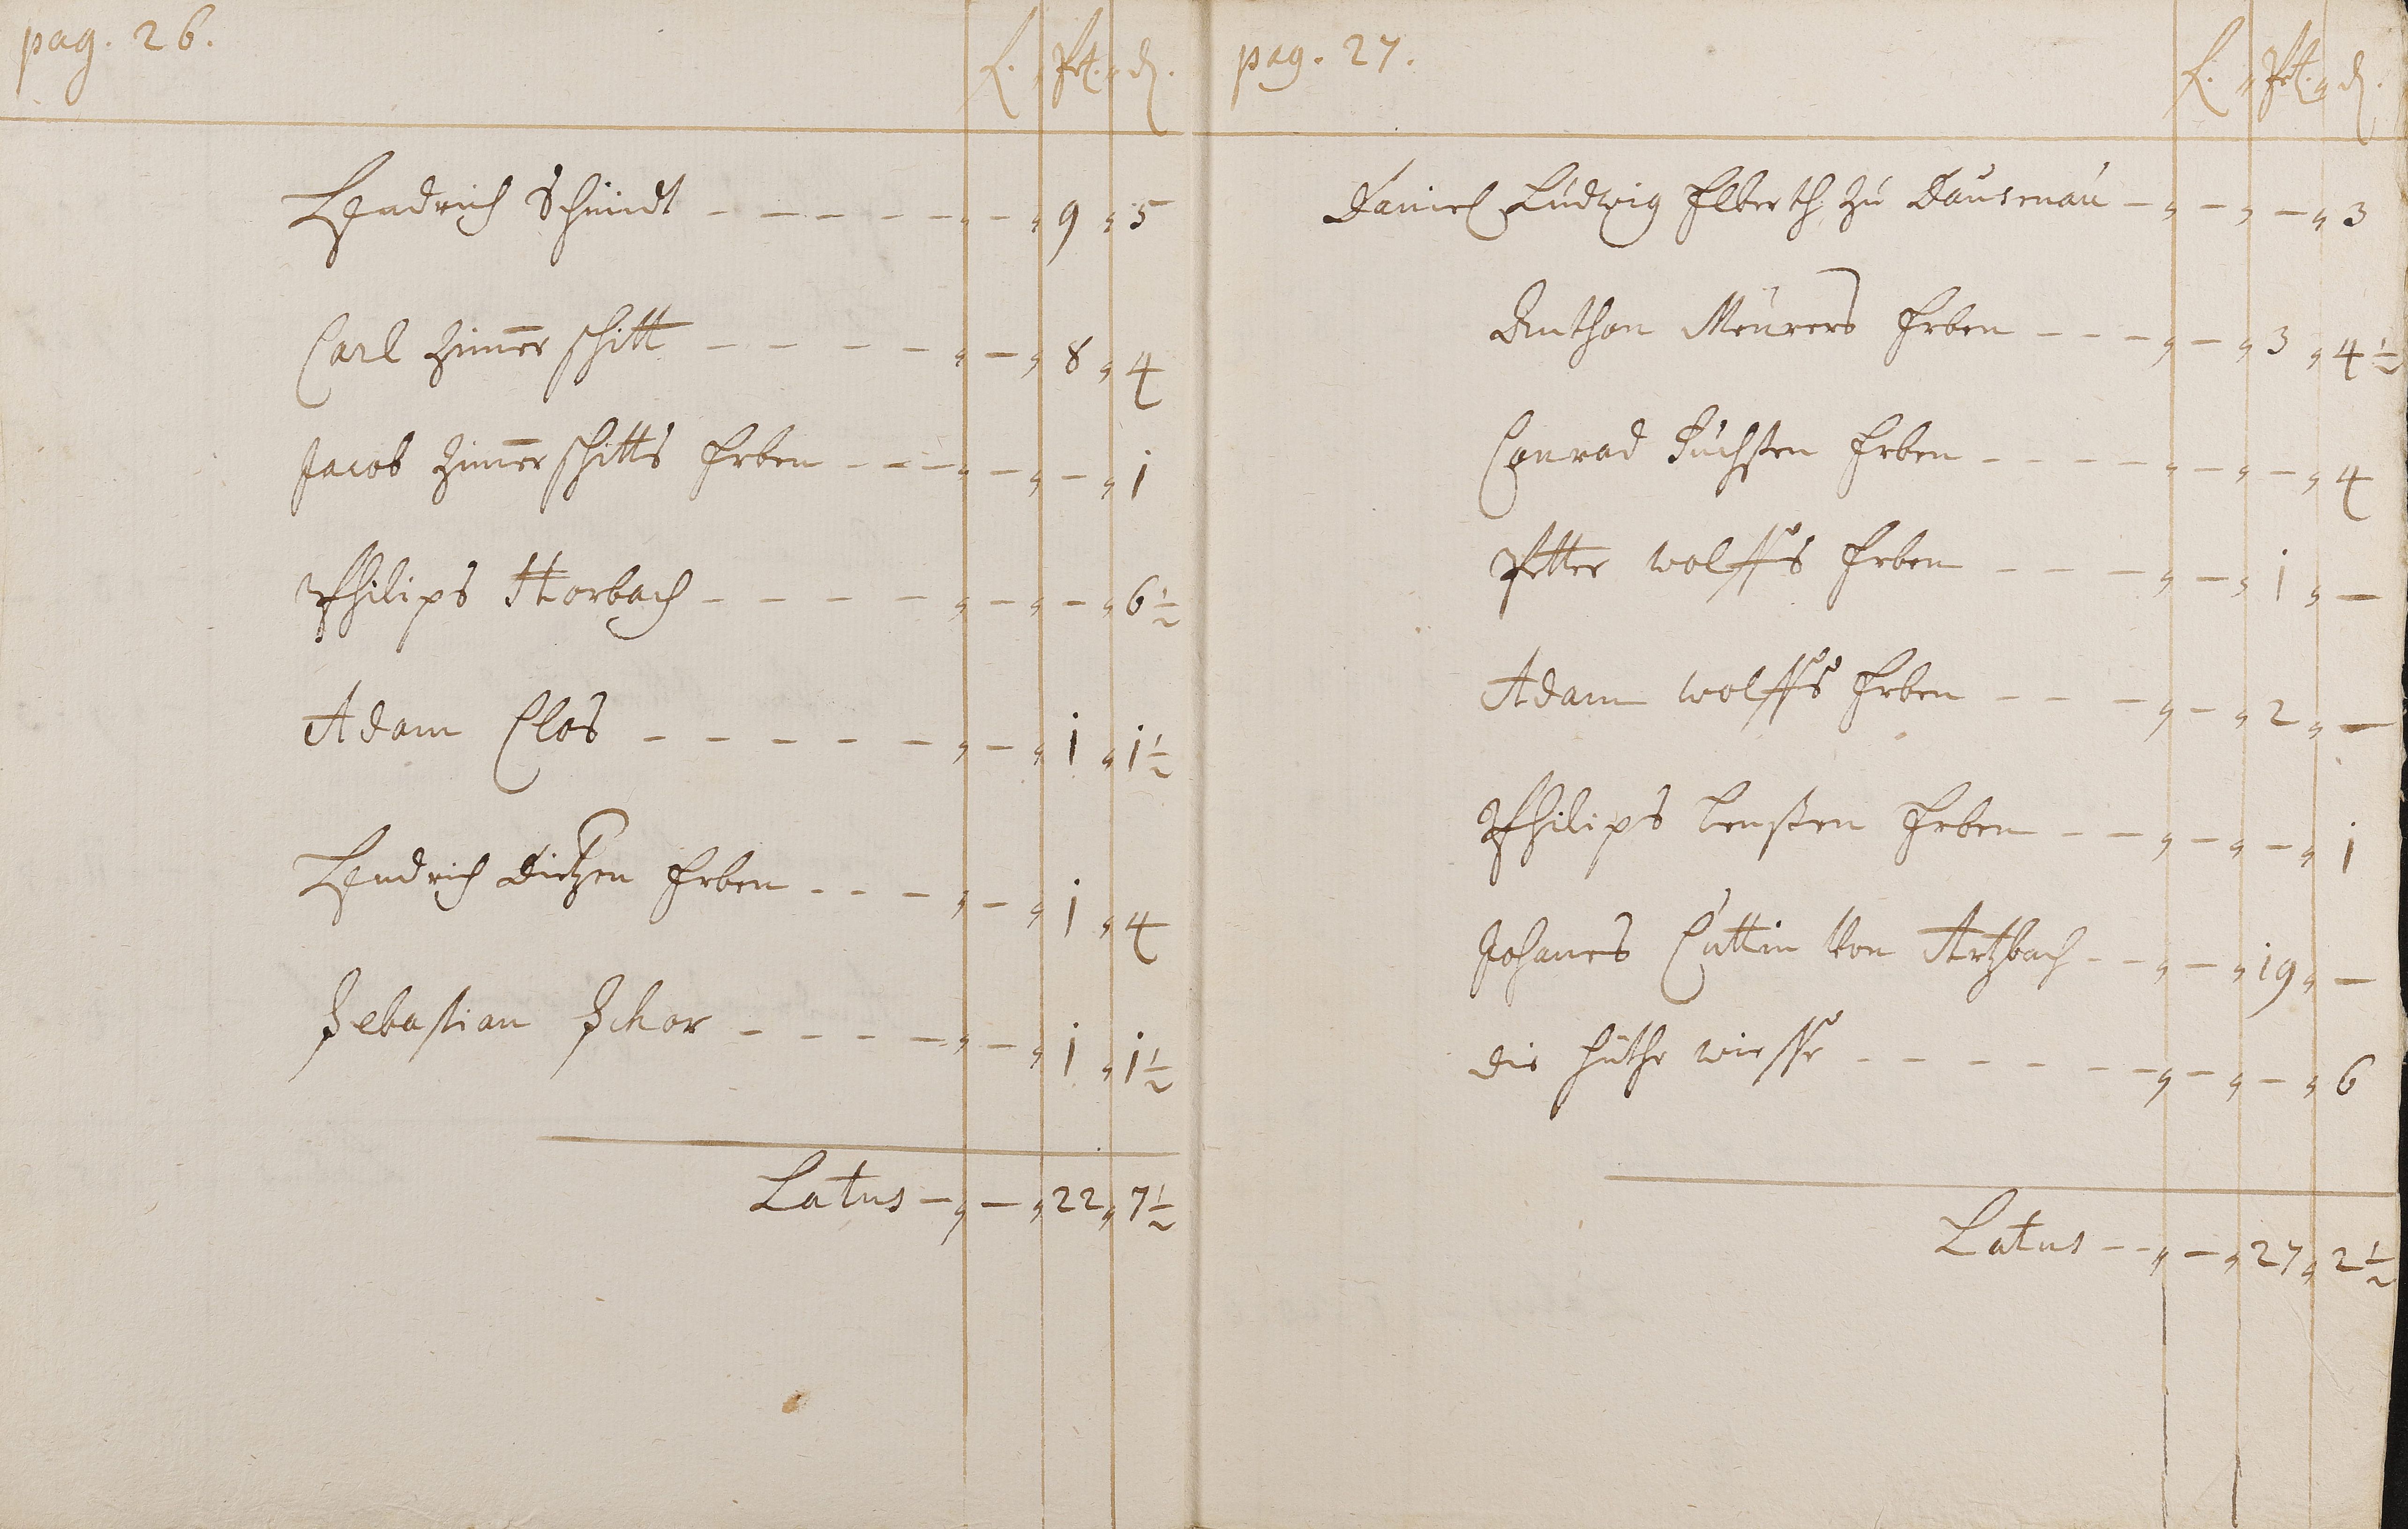 pag. 26.
fl. " Pet. " d.
Hendrich Schmidt - - - - - " - " 9 " 5
Carl Zim̅erschitt - - - - " - " 8 " 4
Jacob Zim̅erschitts Erben - - - " - " - " 1
Philips Horbach - - - - " - " - " 6 1/2
Adam Clos - - - - - " - " 1 " 1 1/2
Hendrich Dietzen Erben - - - " - " 1 " 4
Sebastian Schor - - - - " - " 1 " 1 1/2
Latus - " - " 22 " 7 1/2
pag. 27.
fl. " Pet. " d.
Daniel Ludwig Elberth zu Dausenau - " - " - " 3
Anthon Meurers Erben - - - " - " 3 " 4 1/2
Conrad Fuchsten Erben - - - - " - " - " 4
Petter Wolffs Erben - - - " - " 1 " -
Adam Wolffs Erben - - - " - " 2 " -
Philips Lensten Erben - - " - " - " 1
Johanes Cuttin Von Artzbach - - " - " 19 " -
die Huthe wiesse - - - - - " - " - " 6
Latus - - " - " 27 " 2 1/2